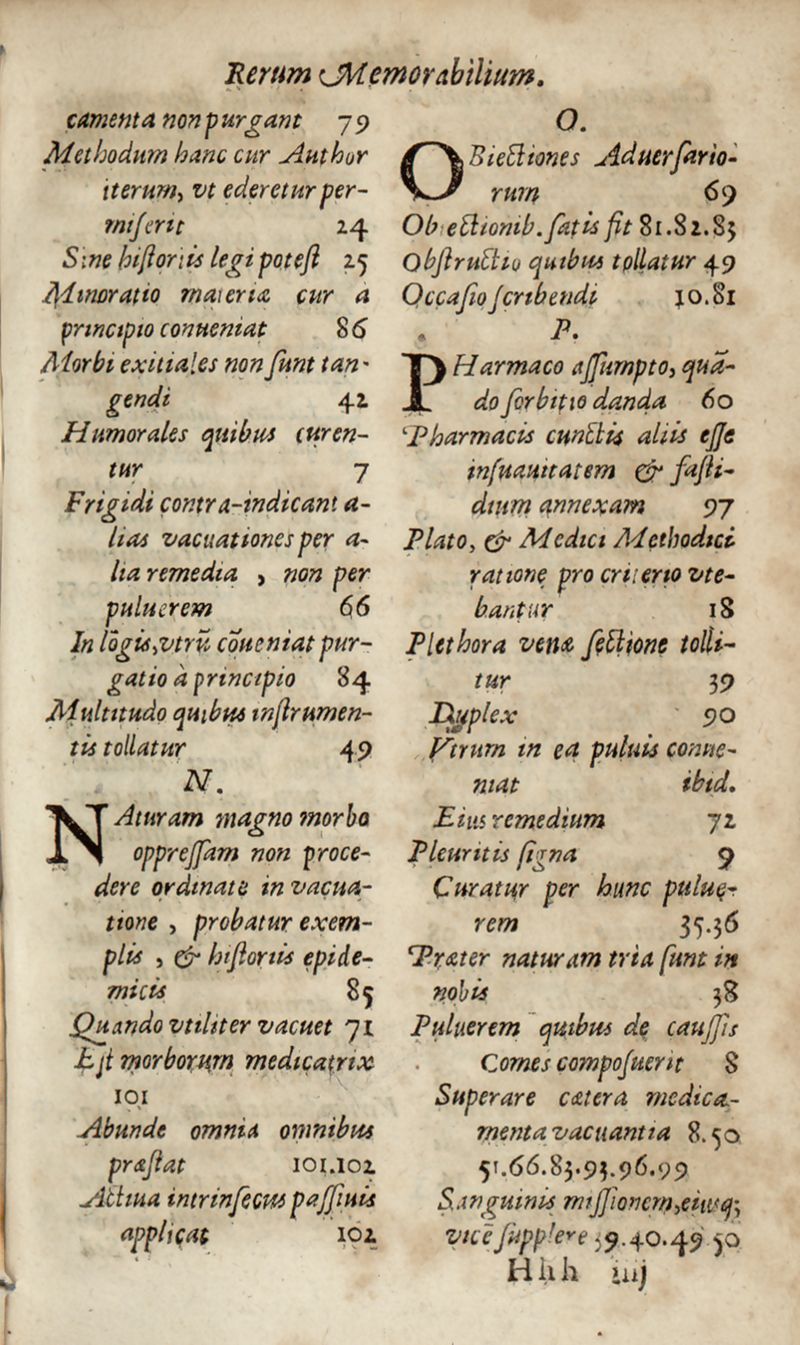 Rerum Memorabilium.
camenta non purgant 79
Methodum hanc cur Author
iterum, vt ederetur per-
miserit 24
Sine historiis legi potest 25
Minoratio materiæ cur a
principio conueniat 86
Morbi exitiales non sunt tan-
gendi 42
Humorales quibus curen-
tur 7
Frigidi contra-indicant a-
lias vacuationes per a-
lia remedia , non per
puluerem 66
In lōgis, vtrū cōueniat pur-
gatio à principio 84
Multitudo quibus instrumen-
tis tollatur 49
N.
NAturam magno morbo
oppressam non proce-
dere ordinate in vacua-
tione , probatur exem-
plis , & historiis epide-
micis 85
Quando vtiliter vacuet 71
Est morborum medicatrix
101
Abunde omnia omnibus
præstat 101.102
Actiua intrinsecus passiuis
applicat 102
O.
OBiectiones Aduersario-
rum 69
Obiectionib. satis fit 81.82.83
Obstructio quibus tollatur 49
Occasio scribendi 10.81
P.
PHarmaco assumpto, quā-
do sorbitio danda 60
Pharmacis cunctis aliis esse
insuauitatem & fasti-
dium annexam 97
Plato, & Medici Methodici
ratione pro criterio vte-
bantur 18
Plethora venæ sectione tolli-
tur 39
Duplex 90
Vtrum in ea puluis conue-
niat ibid.
Eius remedium 72
Pleuritis signa 9
Curatur per hunc pulue-
rem 35.36
Præter naturam tria sunt in
nobis 38
Puluerem quibus de caussis
Comes composuerit 8
Superare cætera medica-
menta vacuantia 8.50
51.66.83.93.96.99
Sanguinis missionem, eiusq;
vicē supplere 39.40.49 50
Hhh iiij